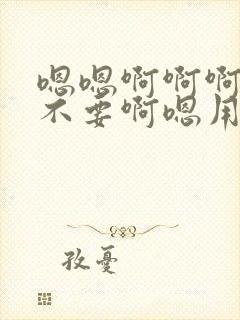 嗯嗯啊啊啊
不要啊嗯用
孜憂